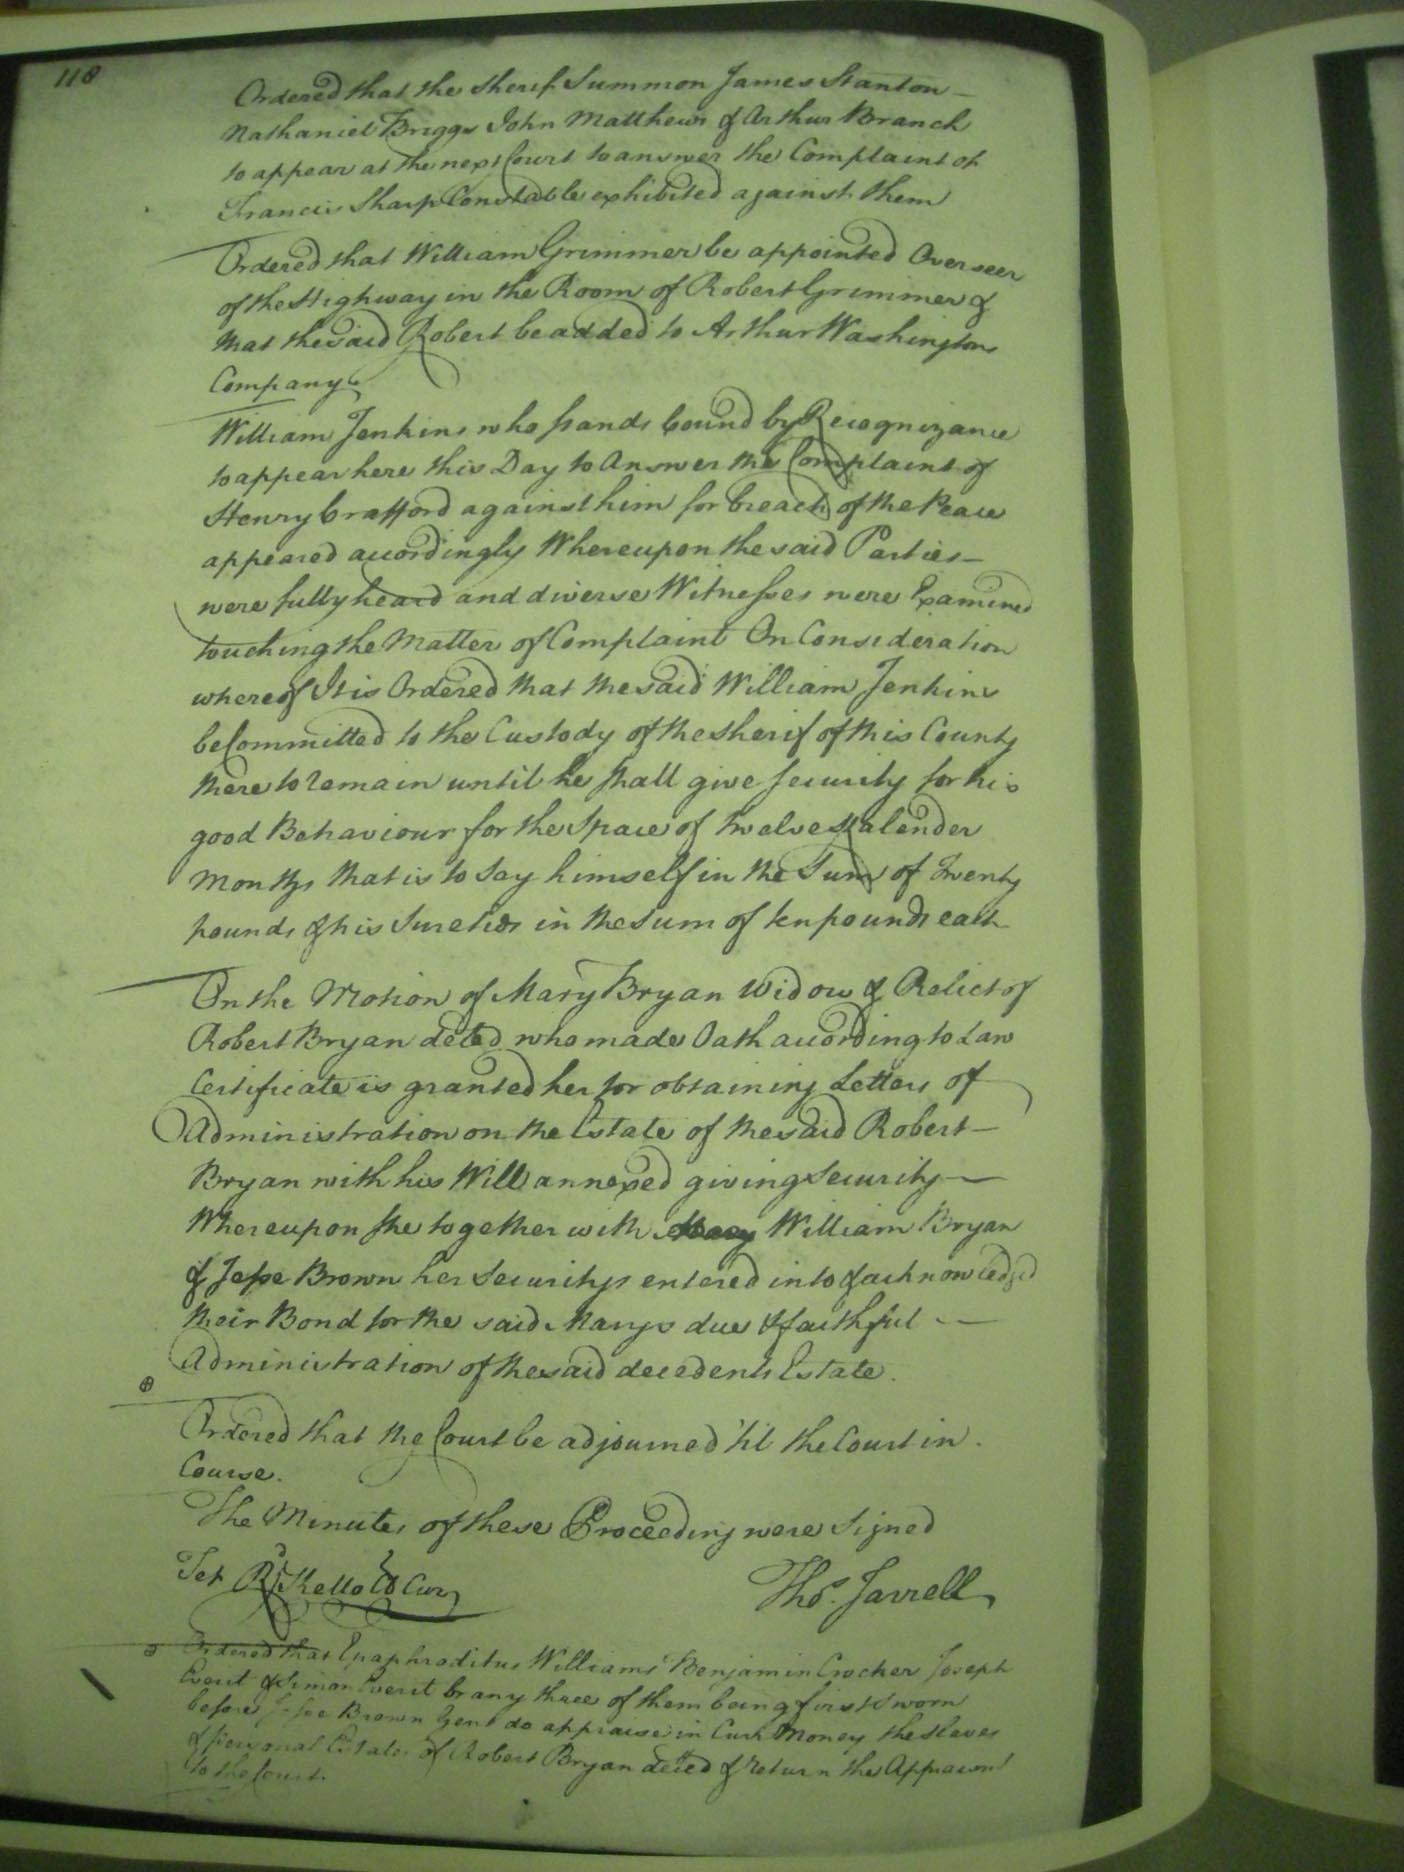 118
Ordered that the Sherif Summon James Stanton
Nathaniel Briggs John Matthews & Arthur Branch
to appear at the next Court to answer the Complaint of
Francis Sharp Constable exhibited against them
Ordered that William Grimmer be appointed Overseer
of the Highway in the Room of Robert Grimmer &
that the said Robert be added to Arthur Washingtons
Company.
William Jenkins who stands bound by Recognizance
to appear here this Day to Answer the Complaint of
Henry Crafford against him for breach of the Peace
appeared accordingly Whereupon the said Parties
were fully heard and diverse Witnesses were Examined
touching the Matter of Complaint On Consideration
whereof It is Ordered that the said William Jenkins
be Committed to the Custody of the Sherif of this County
there to remain until he shall give Security for his
good Behaviour for the Space of twelve Kalender
Months that is to say himself in the Sum of Twenty
pounds & his Sureties in the Sum of ten pounds each
On the Motion of Mary Bryan Widow & Relict of
Robert Bryan deced who made Oath according to Law
Certificate is granted her for obtaining Letters of
Administration on the Estate of the said Robert
Bryan with his Will annexed giving Security
Whereupon she together with Mary William Bryan
& Jesse Brown her Securitys entered into & acknowledged
their Bond for the said Marys due & faithful
Administration of the said decedents Estate.
⊕
Ordered that the Court be adjourned 'til the Court in
Course.
The Minutes of these Proceedings were Signed
Tet Rd Kello Cl Cur
Thos. Jarrell
⊕ Ordered that Epaphroditus Williams Benjamin Crocker Joseph
Everit & Simon Everit or any three of them being first sworn
before Jesse Brown Gent do appraise in Curt Money the Slaves
& personal Estate of Robert Bryan deced & return the Appraismt
to the Court.